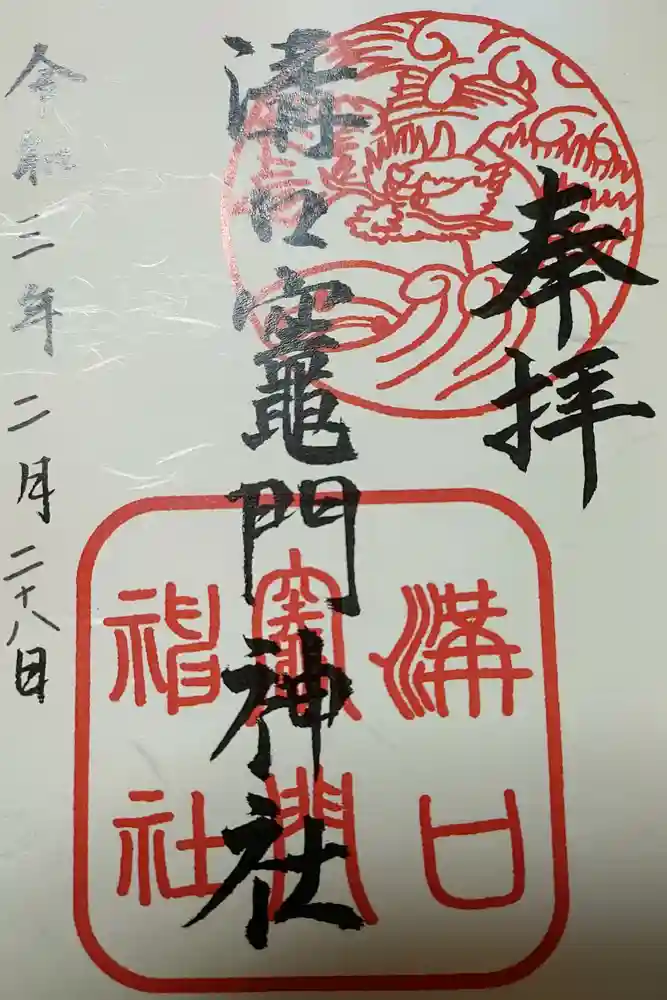 奉拝
溝口竈門神社
令和三年二月二十八日
溝口
竈門
神社